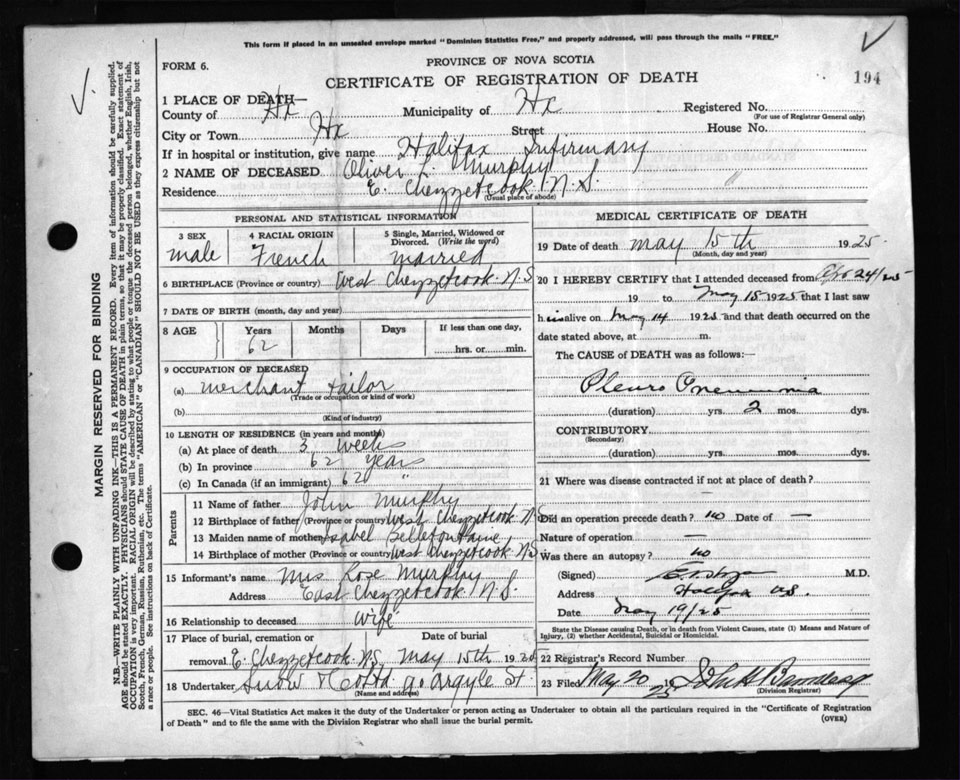 This form if placed in an unsealed envelope marked "Dominion Statistics Free," and properly addressed, will pass through the mails "FREE."
FORM 6.
PROVINCE OF NOVA SCOTIA
CERTIFICATE OF REGISTRATION OF DEATH
194
1 PLACE OF DEATH—
County of Hx Municipality of Hx Registered No.
(For use of Registrar General only)
City or Town Hx Street House No.
If in hospital or institution, give name Halifax Infirmary
2 NAME OF DECEASED Oliver L. Murphy
Residence E. Chezzetcook N.S.
(Usual place of abode)
MARGIN RESERVED FOR BINDING
N.B.—WRITE PLAINLY WITH UNFADING INK—THIS IS A PERMANENT RECORD. Every item of information should be carefully supplied.
AGE should be stated EXACTLY. PHYSICIANS should STATE CAUSE OF DEATH in plain terms, so that it may be properly classified. Exact statement of
OCCUPATION is very important. RACIAL ORIGIN will be described by stating to what people or tongue the deceased person belonged, whether English, Irish,
Scotch, French, German, Russian, Ruthenian, etc. The terms "AMERICAN" or "CANADIAN" SHOULD NOT BE USED as they express citizenship but not
a race or people. See instructions on back of Certificate.
PERSONAL AND STATISTICAL INFORMATION
3 SEX
male
4 RACIAL ORIGIN
French
5 Single, Married, Widowed or
Divorced. (Write the word)
married
6 BIRTHPLACE (Province or country) West Chezzetcook N.S
7 DATE OF BIRTH (month, day and year)
8 AGE Years Months Days If less than one day,
62 hrs. or min.
9 OCCUPATION OF DECEASED
(a) merchant tailor
(Trade or occupation or kind of work)
(b)
(Kind of industry)
10 LENGTH OF RESIDENCE (in years and months)
(a) At place of death 3 weeks
(b) In province 62 years
(c) In Canada (if an immigrant) 62 "
Parents
11 Name of father John Murphy
12 Birthplace of father (Province or country) West Chezzetcook N.S
13 Maiden name of mother Isabel Bellefontaine
14 Birthplace of mother (Province or country) West Chezzetcook N.S
15 Informant's name Mrs Rose Murphy
Address East Chezzetcook N.S.
16 Relationship to deceased Wife
17 Place of burial, cremation or Date of burial
removal E. Chezzetcook N.S May 15th 1925
18 Undertaker Snow & Co Ltd 90 Argyle St.
(Name and address)
MEDICAL CERTIFICATE OF DEATH
19 Date of death May 15th 1925.
(Month, day and year)
20 I HEREBY CERTIFY that I attended deceased from Apr 24/25
19 to May 15 1925 that I last saw
h is alive on May 14 1925 and that death occurred on the
date stated above, at m.
The CAUSE of DEATH was as follows:—
Pleuro Pneumonia
(duration) yrs. 2 mos. dys.
CONTRIBUTORY
(Secondary)
(duration) yrs. mos. dys.
21 Where was disease contracted if not at place of death?
Did an operation precede death? no Date of —
Nature of operation —
Was there an autopsy? no
(Signed) M.D.
Address Halifax N.S.
Date May 19/25
State the Disease causing Death, or in death from Violent Causes, state (1) Means and Nature of
Injury, (2) whether Accidental, Suicidal or Homicidal.
22 Registrar's Record Number
23 Filed May 20 1925
(Division Registrar)
SEC. 46—Vital Statistics Act makes it the duty of the Undertaker or person acting as Undertaker to obtain all the particulars required in the "Certificate of Registration
of Death" and to file the same with the Division Registrar who shall issue the burial permit.
(OVER)